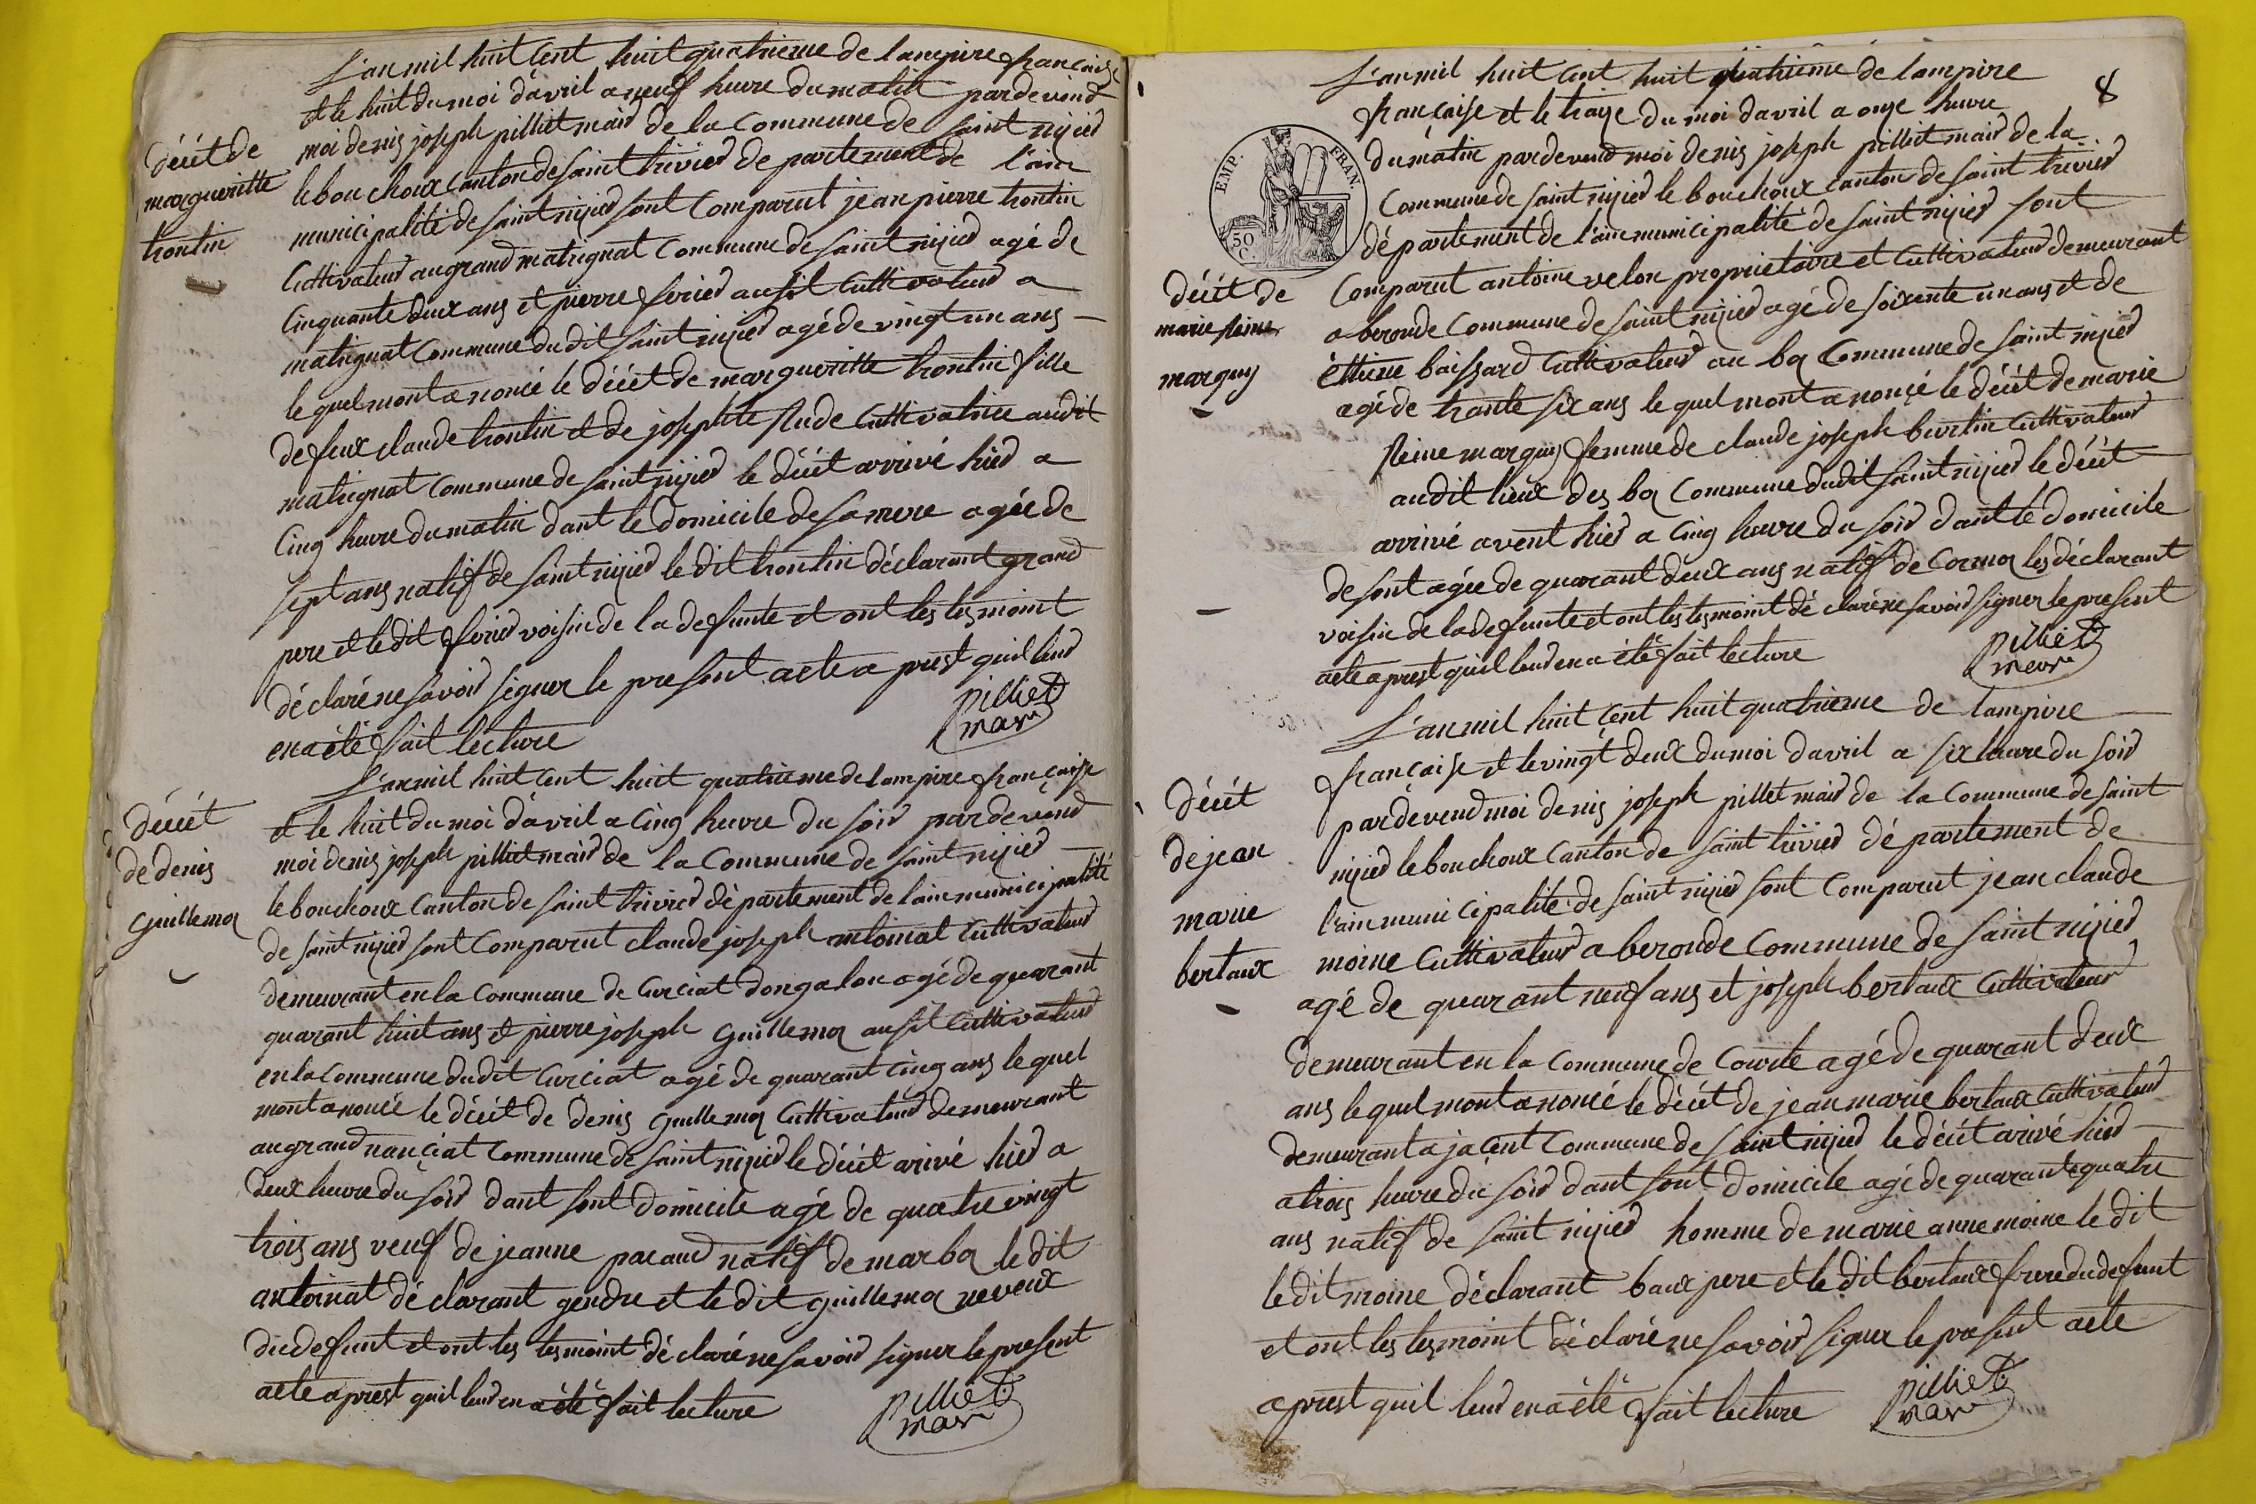 L'an mil huit cent huit quatrieme de lampire française
et le huit du moi d'avril a neuf heure du matin pardevend
moi denis joseph pilliet maid de la Commune de saint nijied
le bouchoux Canton de saint trivied département de l'ain
municipalité de saint nijied sont Comparut jean pierre trontin
Cuttivateud au grand matrignat Commune de saint nijied agé de
Cinquante deux ans et pierre feried aussit Cuttivateud a
matrignat Commune du dit saint nijied agé de vingt un ans
le quel mont anoncé le décet de margueritte trontin fille
de feux claude trontin et de josephte Rude Cuttivatrice au dit
matrignat Commune de saint nijied le décet arrivé hied a
Cinq heure du matin dant le domicile de sa mere agée de
sept ans natif de saint nijied le dit trontin déclarant grand
pere et le dit feried voisin de la defunte et ont les tesmoint
déclaré ne savoid signer le present acte a prest quil leud
en a été fait lecture
pilliet
mair
décet de
margueritte
trontin
L'an mil huit cent huit quatrieme de lampire française
et le huit du moi d'avril a Cinq heure du soid pardevend
moi denis joseph pilliet maid de la Commune de saint nijied
le bouchoux Canton de saint trivied département de l'ain municipalité
de saint nijied sont Comparut claude joseph antoinat Cuttivateud
demeurant en la Commune de Curciat dongalon agé de quarant
quarant huit ans et pierre joseph Guillemoq aussit Cuttivateud
en la Commune du dit Curciat agé de quarant cinq ans le quel
mont anoncé le décet de denis Guillemoq Cuttivateud demeurant
au grand nanciat Commune de saint nijied le décet arivé hied a
deux heure du soid dant sont domicile agé de quatre vingt
trois ans veuf de jeanne pacaud natif de marboq le dit
antoinat déclarant gendre et le dit guillemoq neveux
du defunt et ont les tesmoint déclaré ne savoid signer le present
acte a prest quil leud en a été fait lecture
pilliet
mair
décet
de denis
Guillemoq
8
EMP. FRAN.
50 C.
L'an mil huit cent huit quatrieme de lampire
française et le traize du moi davril a onze heure
du matin pardevend moi denis joseph pilliet maid de la
Commune de saint nijied le bouchoux Canton de saint trivied
département de l'ain municipalité de saint nijied sont
Comparut antoine velon proprietaire et Cuttivateud demeurant
a beronde Commune de saint nijied agé de soixente un ans et de
ettiene baissard Cuttivateud au boq Commune de saint nijied
agé de trante six ans le quel mont anonçé le décet de marie
Reine marquy femme de claude joseph burtin Cuttivateud
au dit lieux des boq Commune du dit saint nijied le décet
arrivé avent hied a Cinq heure du soid dant le domicile
de sont agée de quarant deux ans natif de Cormoq les déclarant
voisin de la defunte et ont les tesmoint déclaré ne savoid signer le present
acte a prest quil leud en a été fait lecture
pilliet
mair
décet de
marie Reine
marquy
L'an mil huit Cent huit quatrieme de lampire
française et le vingt deux du moi d'avril a six heure du soid
pardevend moi denis joseph pilliet maid de la Commune de saint
nijied le bouchoux Canton de saint trivied département de
l'ain municipalité de saint nijied sont Comparut jean claude
moine Cuttivateud a beronde Commune de saint nijied
agé de quarant neuf ans et joseph bertaux Cuttivateud
demeurant en la Commune de Courte agé de quarant deux
ans le quel mont anoncé le décet de jean marie bertaux Cuttivateud
demeurant a jacent Commune de saint nijied le décet arivé hied
a trois heure du soid dant sont domicile agé de quarante quatre
ans natif de saint nijied homme de marie anne moine le dit
le dit moine déclarant baux pere et le dit bertaux frere du defunt
et ont les tesmoint déclaré ne savoid signer le present acte
a prest quil leud en a été fait lecture
pilliet
mair
décet
de jean
marie
bertaux